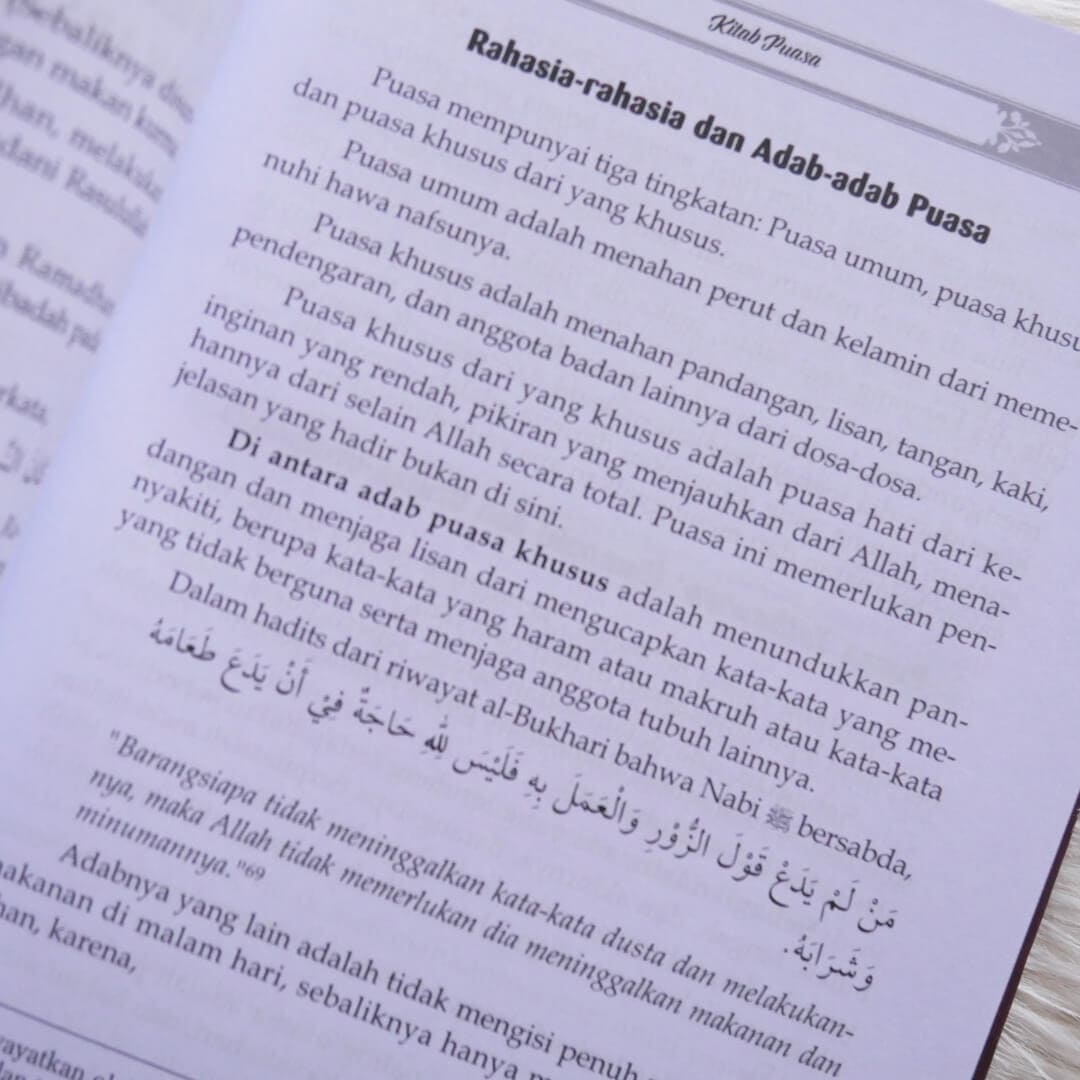 (Sebaliknya
makan
melakuka
Ramadha
ibadah
Kitab Puasa
Rahasia-rahasia dan Adab-adab Puasa
Puasa mempunyai tiga tingkatan: Puasa umum, puasa khusu
dan puasa khusus dari yang khusus.
Puasa umum adalah menahan perut dan kelamin dari meme-
nuhi hawa nafsunya.
Puasa khusus adalah menahan pandangan, lisan, tangan, kaki,
pendengaran, dan anggota badan lainnya dari dosa-dosa.
Puasa khusus dari yang khusus adalah puasa hati dari ke-
inginan yang rendah, pikiran yang menjauhkan dari Allah, mena-
hannya dari selain Allah secara total. Puasa ini memerlukan pen-
jelasan yang hadir bukan di sini.
Di antara adab puasa khusus adalah menundukkan pan-
dangan dan menjaga lisan dari mengucapkan kata-kata yang me-
nyakiti, berupa kata-kata yang haram atau makruh atau kata-kata
yang tidak berguna serta menjaga anggota tubuh lainnya.
Dalam hadits dari riwayat al-Bukhari bahwa Nabi ﷺ bersabda,
مَنْ لَمْ يَدَعْ قَوْلَ الزُّوْرِ وَالْعَمَلَ بِهِ فَلَيْسَ لِلّٰهِ حَاجَةٌ فِيْ أَنْ يَدَعَ طَعَامَهُ
وَشَرَابَهُ.
"Barangsiapa tidak meninggalkan kata-kata dusta dan melakukan-
nya, maka Allah tidak memerlukan dia meninggalkan makanan dan
minumannya."69
Adabnya yang lain adalah tidak mengisi penuh
makanan di malam hari, sebaliknya hanya
han, karena,